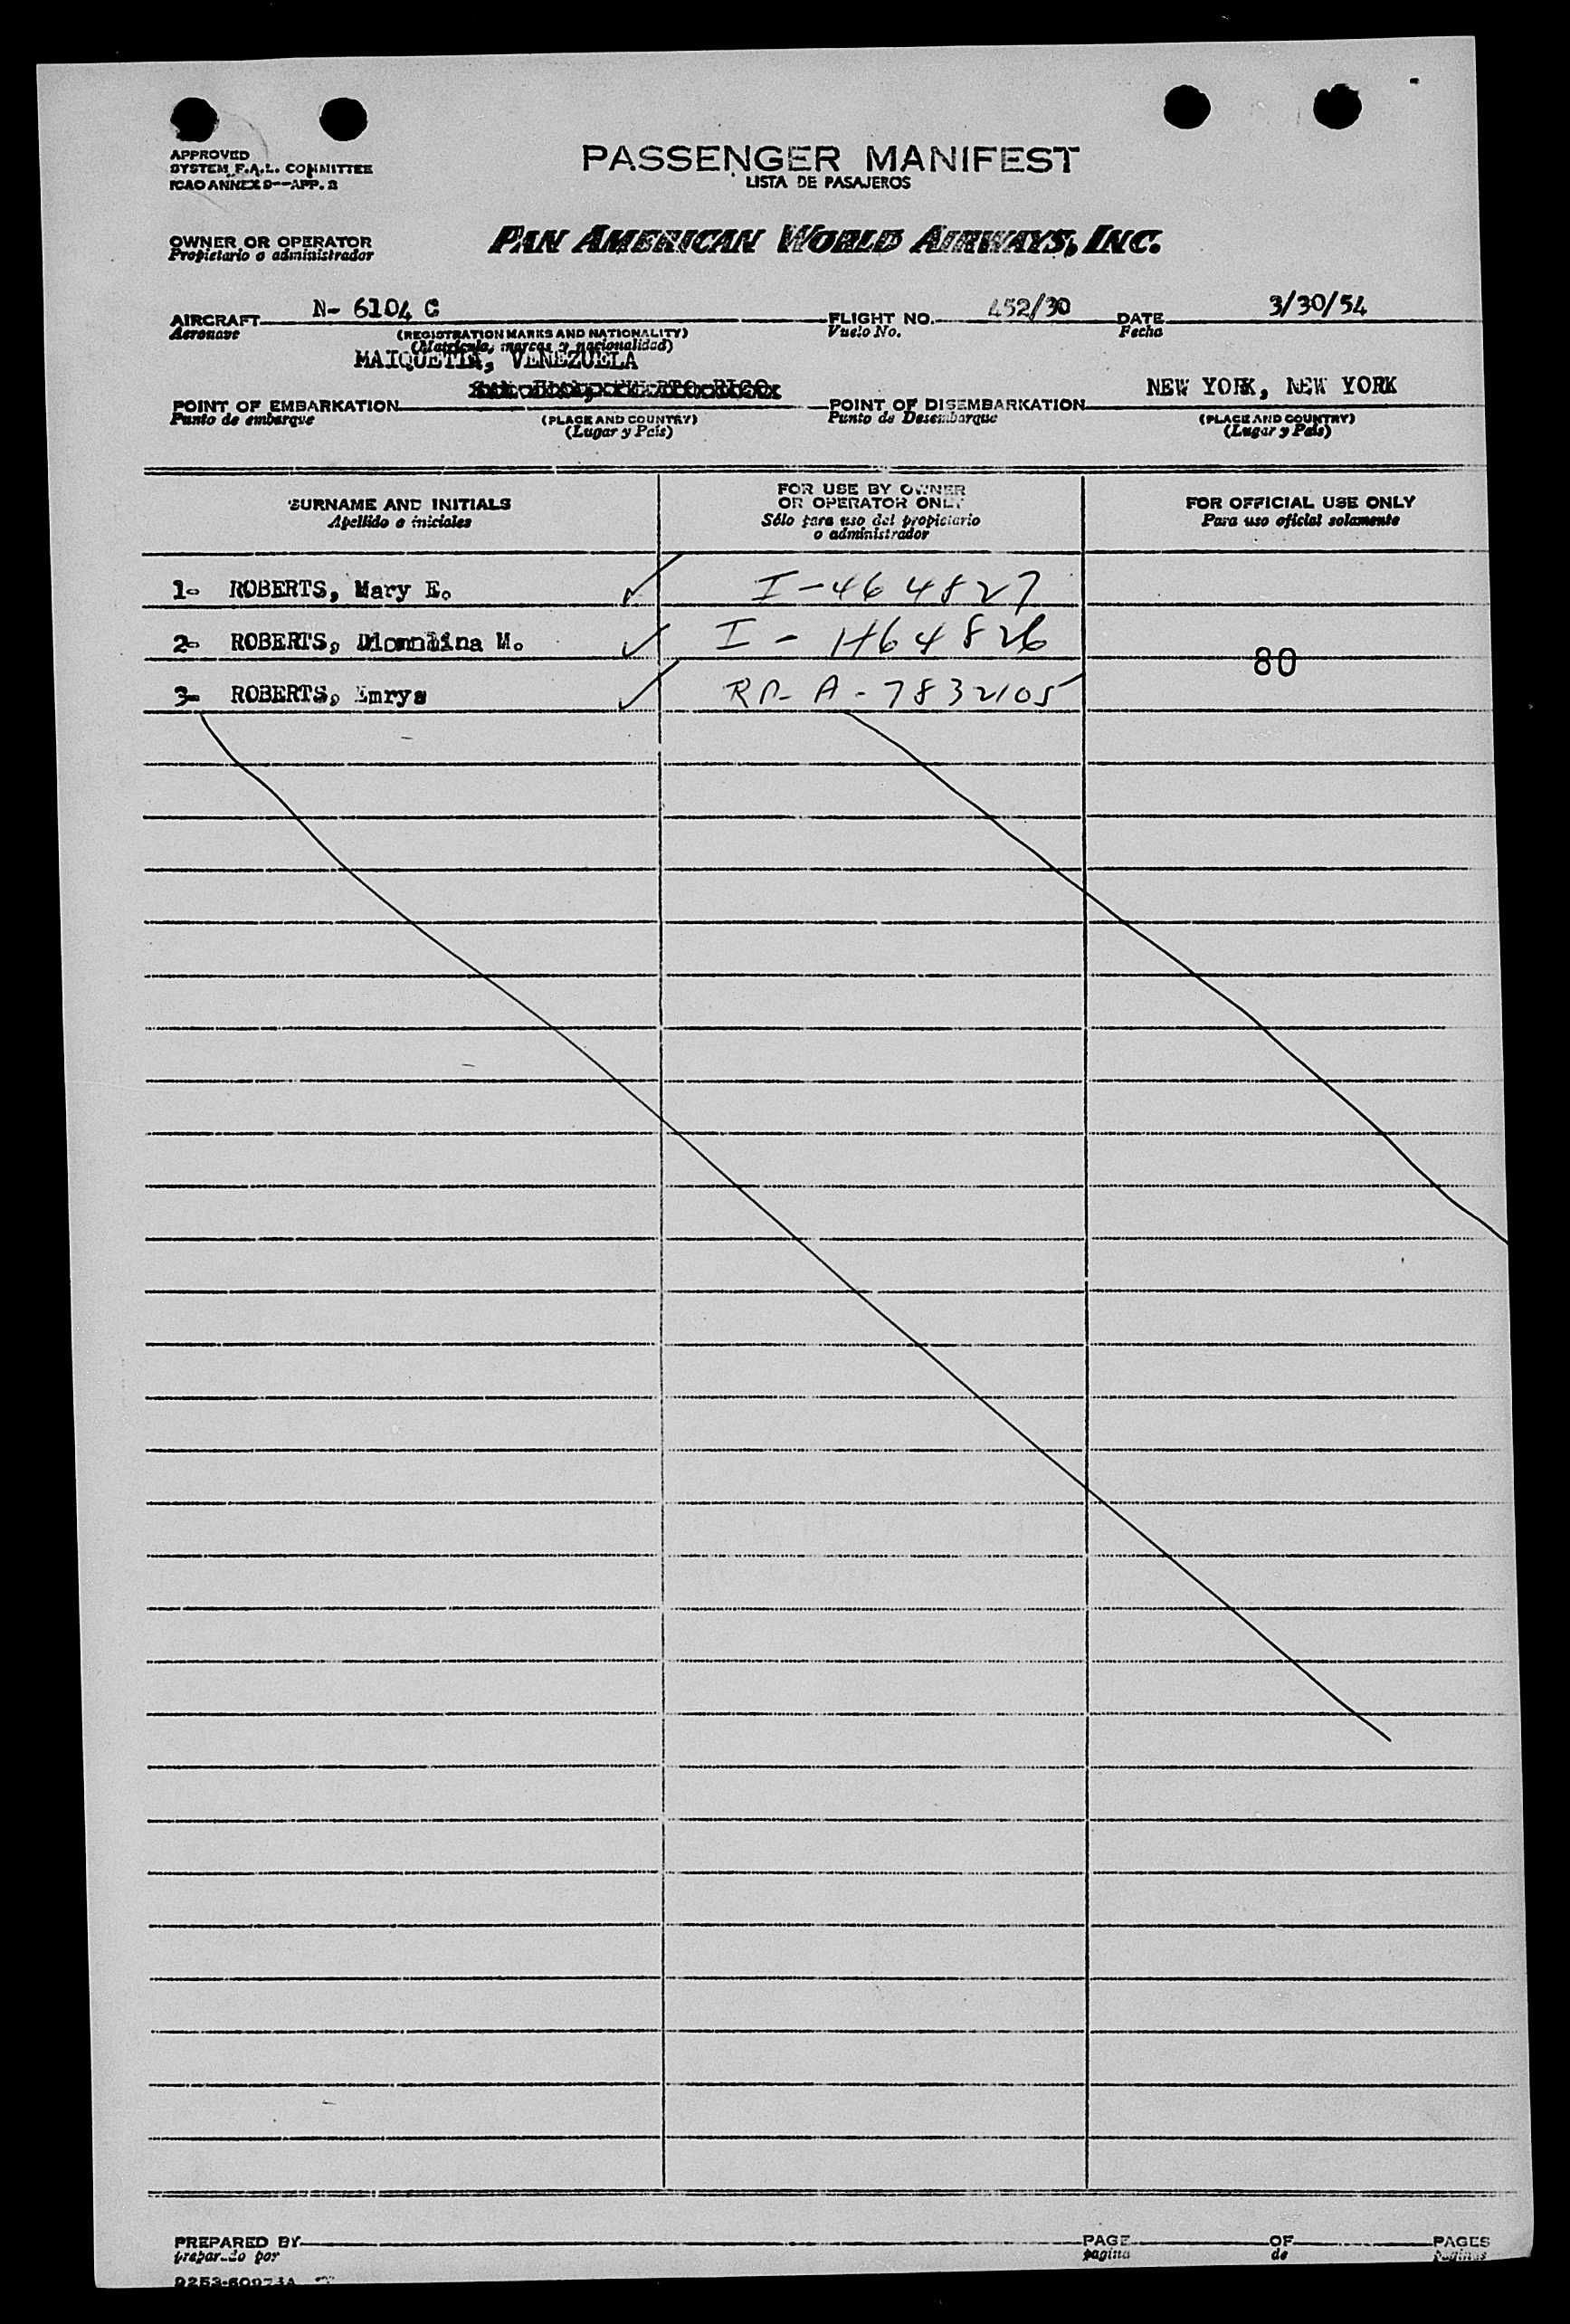 APPROVED
SYSTEM F.A.L. COMMITTEE
ICAO ANNEX 9--APP. 2
PASSENGER MANIFEST
LISTA DE PASAJEROS
OWNER OR OPERATOR
Propietario o administrador
PAN AMERICAN WORLD AIRWAYS, INC.
AIRCRAFT N- 6104 C FLIGHT NO. 452/30 DATE 3/30/54
Aeronave (REGISTRATION MARKS AND NATIONALITY) Vuelo No. Fecha
(Matrícula, marcas y nacionalidad)
MAIQUETIA, VENEZUELA
SAN JUAN, PUERTO RICO
NEW YORK, NEW YORK
POINT OF EMBARKATION POINT OF DISEMBARKATION
Punto de embarque (PLACE AND COUNTRY) Punto de Desembarque (PLACE AND COUNTRY)
(Lugar y País) (Lugar y País)
SURNAME AND INITIALS
Apellido e iniciales
FOR USE BY OWNER
OR OPERATOR ONLY
Sólo para uso del propietario
o administrador
FOR OFFICIAL USE ONLY
Para uso oficial solamente
1- ROBERTS, Mary E. I-464827
2- ROBERTS, M. I - 464826
80
3- ROBERTS, Emrys A-7832105
PREPARED BY PAGE OF PAGES
preparado por pagina de paginas